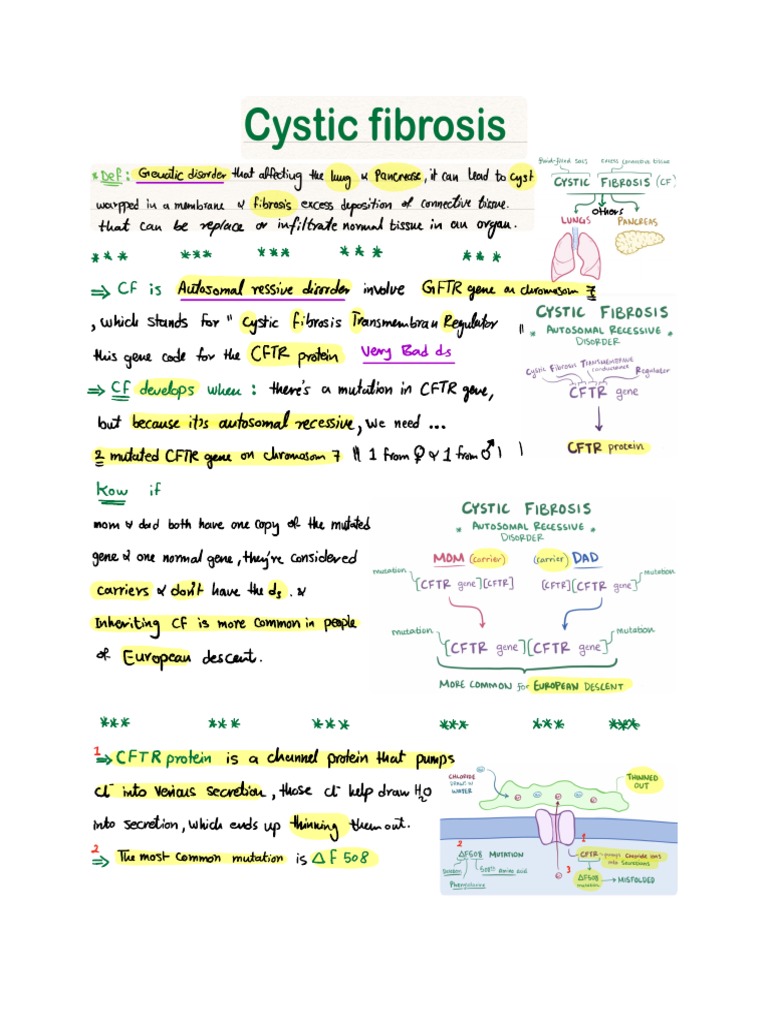 Cystic fibrosis
* Def: Genetic disorder that affecting the lung & Pancrease, it can lead to cyst
warpped in a membrane & fibrosis excess deposition of connective tissue.
that can be replace or infiltrate normal tissue in an organ.
fluid-filled sacs excess connective tissue
CYSTIC FIBROSIS (CF)
others
LUNGS PANCREAS
*** *** *** *** ***
⇒ CF is Autosomal ressive disorder involve GFTR gene on chromasom 7
, which stands for " Cystic fibrosis Transmembran Regulator "
this gene code for the CFTR protein Very Bad ds
⇒ CF develops when : there's a mutation in CFTR gene,
but because it's autosomal recessive, we need ...
2 mutated CFTR gene on chromasom 7 " 1 from ♀ & 1 from ♂
CYSTIC FIBROSIS
* AUTOSOMAL RECESSIVE *
DISORDER
Cystic Fibrosis TRANSMEMBRANE conductance Regulator
CFTR gene
CFTR protein
Kow if
mom & dad both have one copy of the mutated
gene & one normal gene, they're considered
carriers & don't have the ds. &
Inheriting CF is more common in people
of European descent.
CYSTIC FIBROSIS
* AUTOSOMAL RECESSIVE *
DISORDER
MOM (carrier) (carrier) DAD
mutation mutation
[CFTR gene][CFTR] [CFTR][CFTR gene]
mutation mutation
[CFTR gene][CFTR gene]
MORE COMMON for EUROPEAN DESCENT
*** *** *** *** *** ***
1 ⇒ CFTR protein is a channel protein that pumps
cl⁻ into verious secretion, those cl⁻ help draw H₂O
into secretion, which ends up thinking them out.
2 ⇒ The most common mutation is ΔF508
CHLORIDE
DRAWS IN
WATER
THINNED
OUT
1
CFTR → pumps Chloride ions
into Secretions
2
ΔF508 MUTATION
Deletion 508th amino acid
Phenylalanine
3
ΔF508
mutation → MISFOLDED